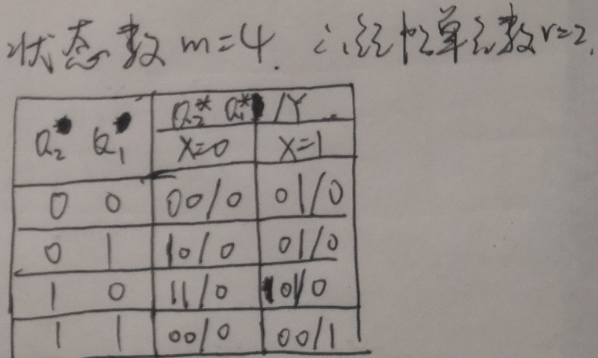 状态数 m=4. ∴ 编码单元数 r=2.
Q₂ Q₁ Q₂* Q₁* /Y
X=0 X=1
0 0 00/0 01/0
0 1 10/0 01/0
1 0 11/0 01/0
1 1 00/0 00/1